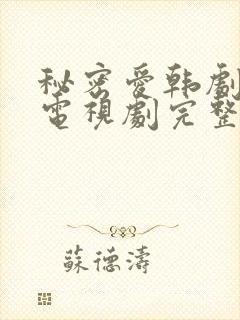 秘密愛韩劇
電視劇完整
蘇德濤